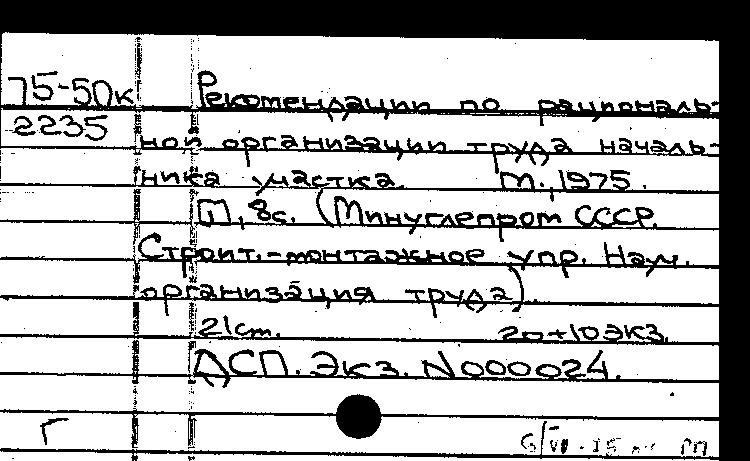 75-50к
2235
Рекомендации по рациональ-
ной организации труда началь-
ника участка. М., 1975.
П, 8с. (Минуглепром СССР.
Строит.-монтажное упр. Науч.
организация труда).
21см. 20+10экз.
ДСП. Экз. N000024.
Г